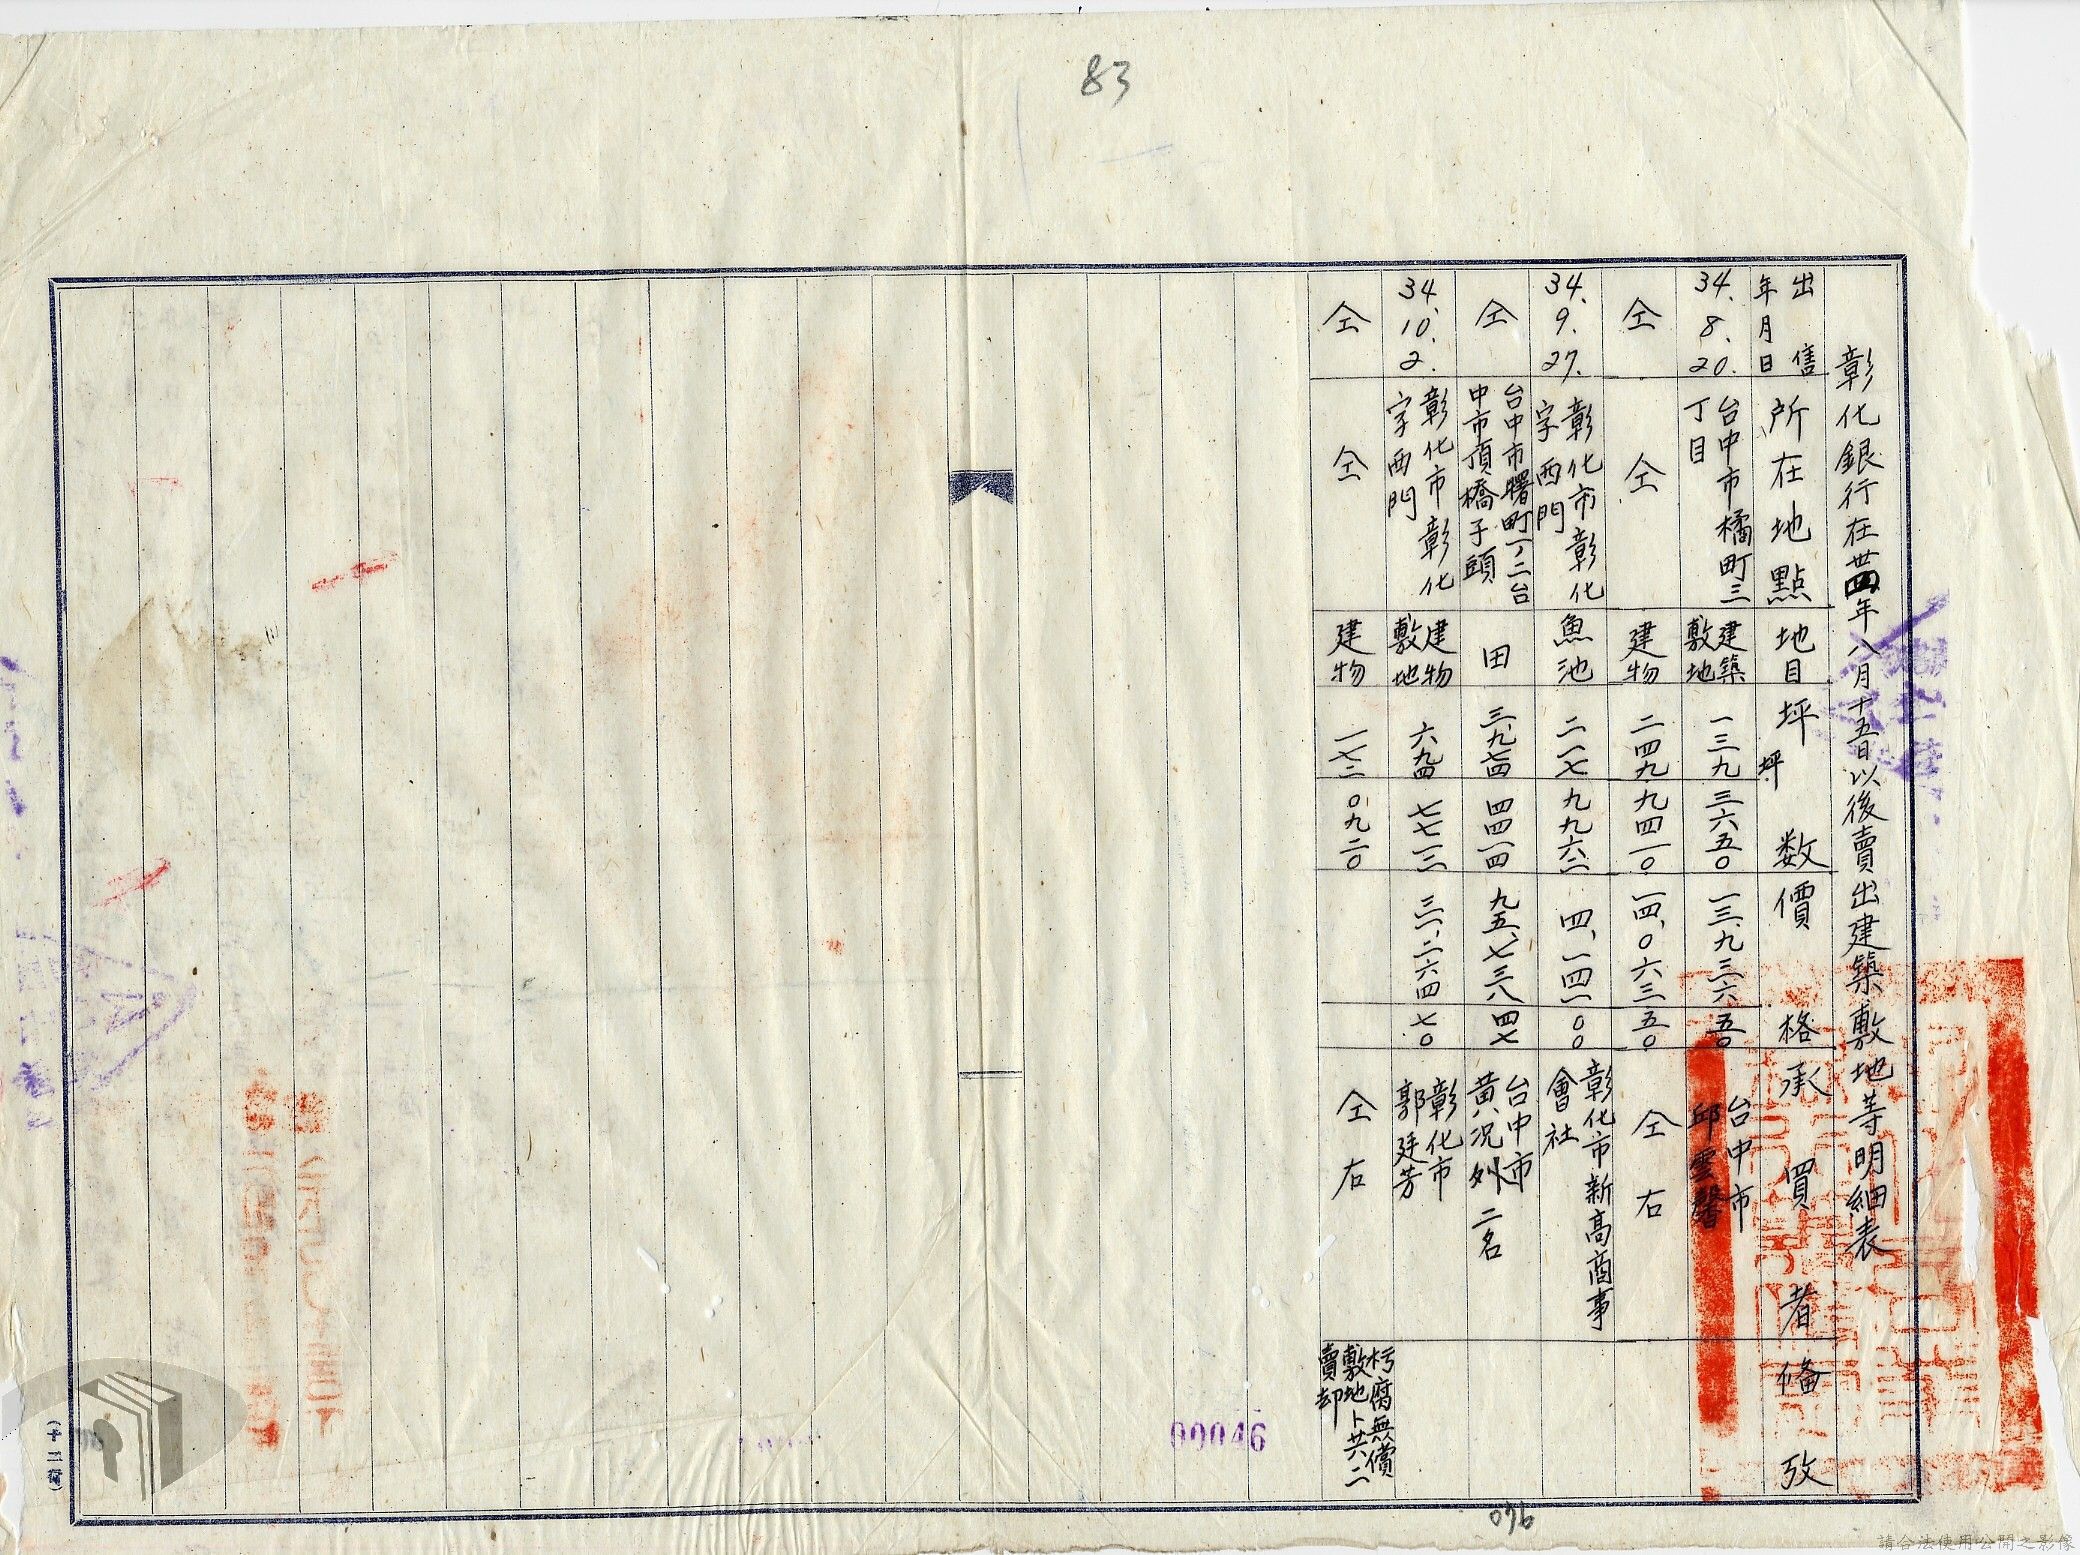 83
彰化銀行在卅四年八月十五日以後賣出建築敷地等明細表
出售年月日 所在地點 地目 坪数 坪 價格 承買者 俻攷
34.8.20. 台中市橘町三丁目 建築敷地 一三九 三六五〇 一三、九三六 五〇 台中市 邱雲馨
仝 仝 建物 二四九 九四一〇 一四、〇六三 五〇 仝右
34.9.27. 彰化市彰化字西門 魚池 二一七 九九六二 四、一四一 〇〇 彰化市新高商事會社
仝 台中市曙町一、二台中市頂橋子頭 田 三、九七四 四四一四 九五、七三八 四七 台中市 黃八况外二名
34.10.2. 彰化市彰化字西門 建物敷地 六九四 七七一三 三一、二六四 七〇 彰化市 郭廷芳
仝 仝 建物 一七二 〇九二〇 仝右 朽腐無償敷地卜共二賣却
00046
046
(十二行)
請合法使用公開之影像